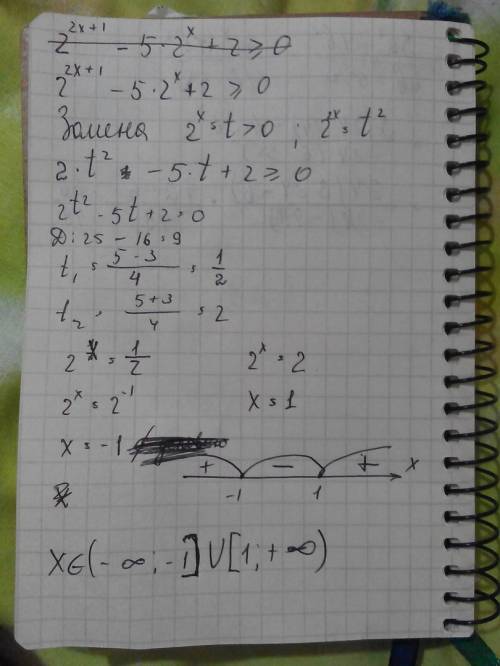 2^{2x+1} - 5·2^x + 2 ⩾ 0
2^{2x+1} - 5·2^x + 2 ⩾ 0
Замена 2^x = t > 0 ; 2^x = t^2
2·t^2 - 5·t + 2 ⩾ 0
2t^2 - 5t + 2 = 0
D = 25 - 16 = 9
t_1 = \frac{5-3}{4} = \frac{1}{2}
t_2 = \frac{5+3}{4} = 2
2^x = \frac{1}{2} 2^x = 2
2^x = 2^{-1} x = 1
x = -1
+ - + x
-1 1
x ∈ (-∞; -1] ∪ [1; +∞)